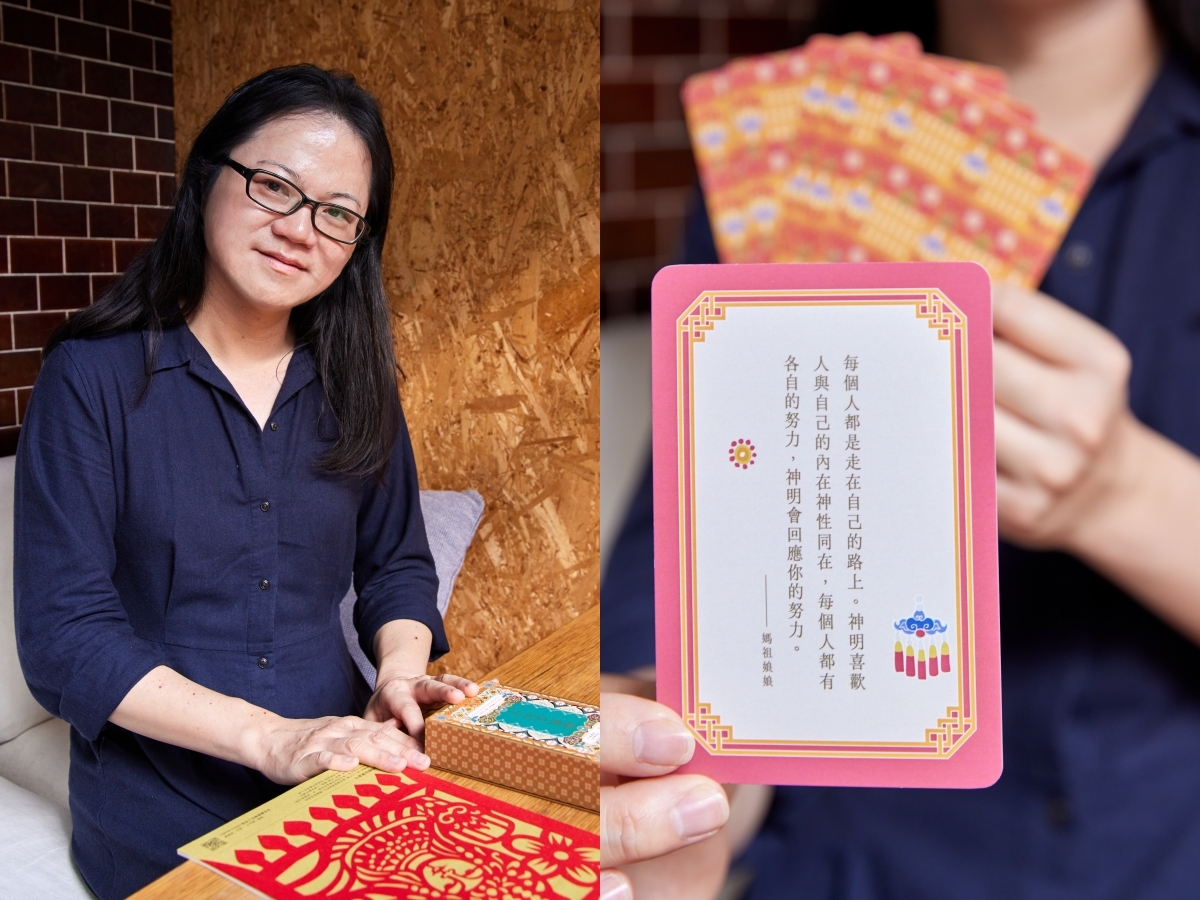 每個人都是走在自己的路上。神明喜歡
人與自己的內在神性同在，每個人都有
各自的努力，神明會回應你的努力。
——媽祖娘娘